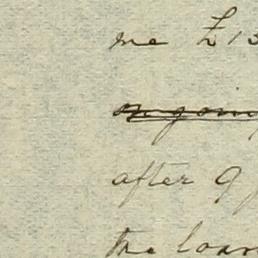 me £13
on going
after 9
the loan